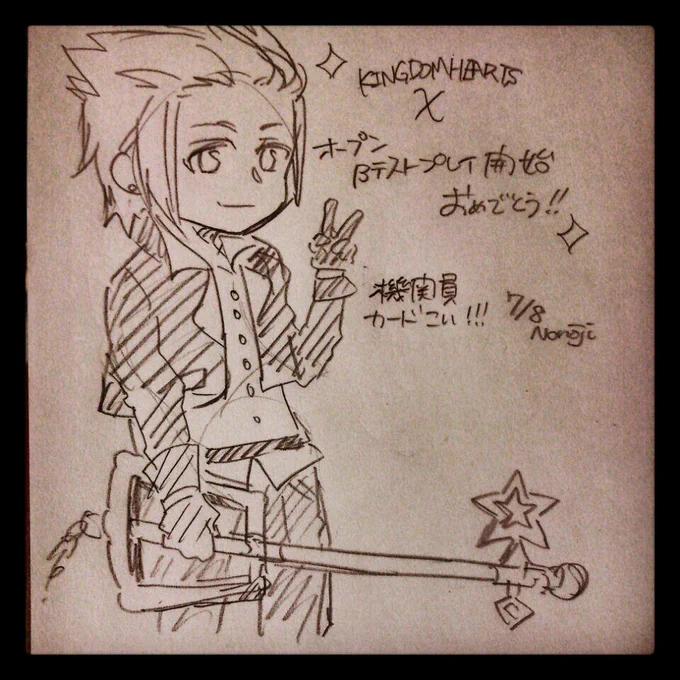 KINGDOM HEARTS
χ
オープン
βテストプレイ開始
おめでとう!!
機関員
カードこい!!!
7/8
Nonoji